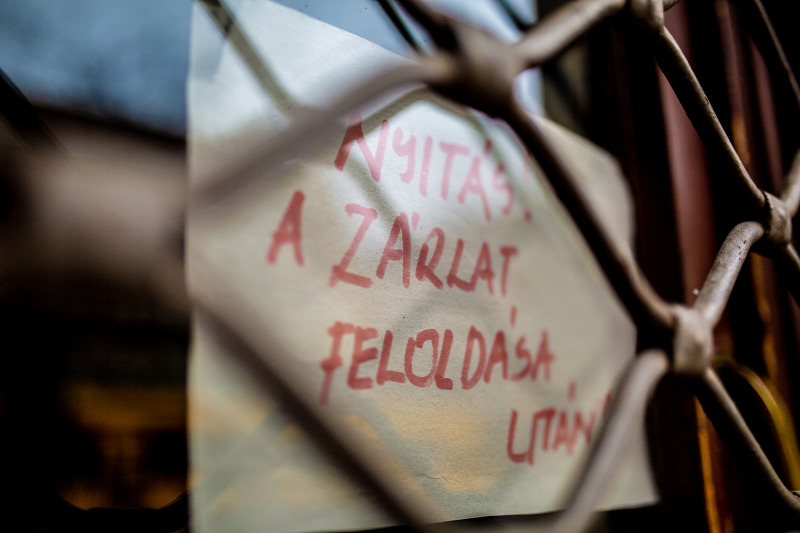 NYITÁS!
A ZÁRLAT
FELOLDÁSA
UTÁN!